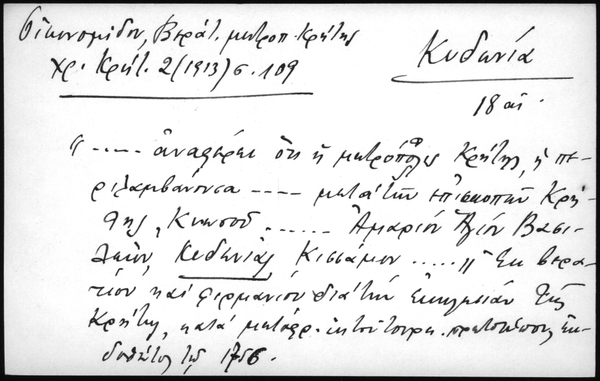 Οἰκονομίδου, Βεράτ. μητροπ. Κρήτης
Χρ. Κρήτ. 2 (1913) σ. 109
Κυδωνία
18 αἰ.
"..... ἀναφέρει ὅτι ἡ μητρόπολις Κρήτης, ἡ πε-
ριλαμβάνουσα ---- μετὰ τῶν ἐπισκοπῶν Κρή-
της, Κνωσοῦ ...... Ἀμαρίου Ἁγίου Βασι-
λείου, Κυδωνίας Κισσάμου ....." Ἐκ βερα-
τίου καὶ φιρμανίου διὰ τὴν ἐκκλησίαν τῆς
Κρήτης, κατὰ μετάφρ. ἐκ τοῦ τουρκ. πρωτοτύπου ἐκ-
δοθέντος τῷ 1756.